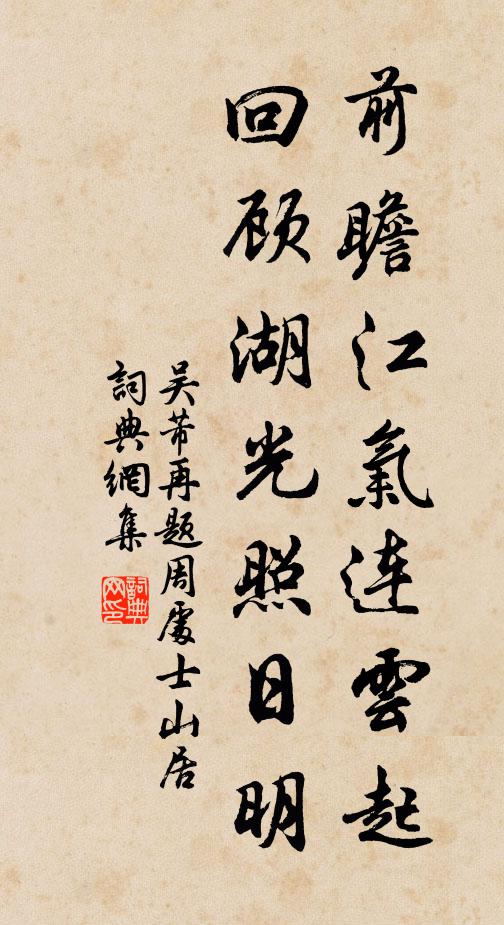 前瞻江氣連雲起
回顾湖光照日明
吴芾再题周處士山居
詞典網集
詞典網印